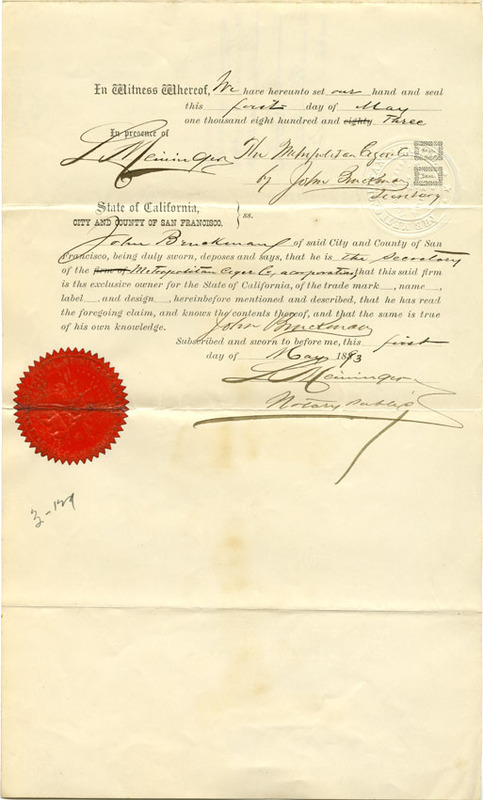 In Witness Whereof, We have hereunto set our hand and seal
this first day of May
one thousand eight hundred and eighty Three
In presence of
The Metropolitan Cigar Co
L Meininger
by John Bruckman
Secretary
State of California,
CITY AND COUNTY OF SAN FRANCISCO. } ss.
John Bruckman of said City and County of San
Francisco, being duly sworn, deposes and says, that he is the Secretary
of the firm of Metropolitan Cigar Co, a corporation that this said firm
is the exclusive owner for the State of California, of the trade mark, name
label and design, hereinbefore mentioned and described, that he has read
the foregoing claim, and knows the contents thereof, and that the same is true
of his own knowledge. John Bruckman
Subscribed and sworn to before me, this first
day of May 1893
L Meininger
Notary Public
3-129